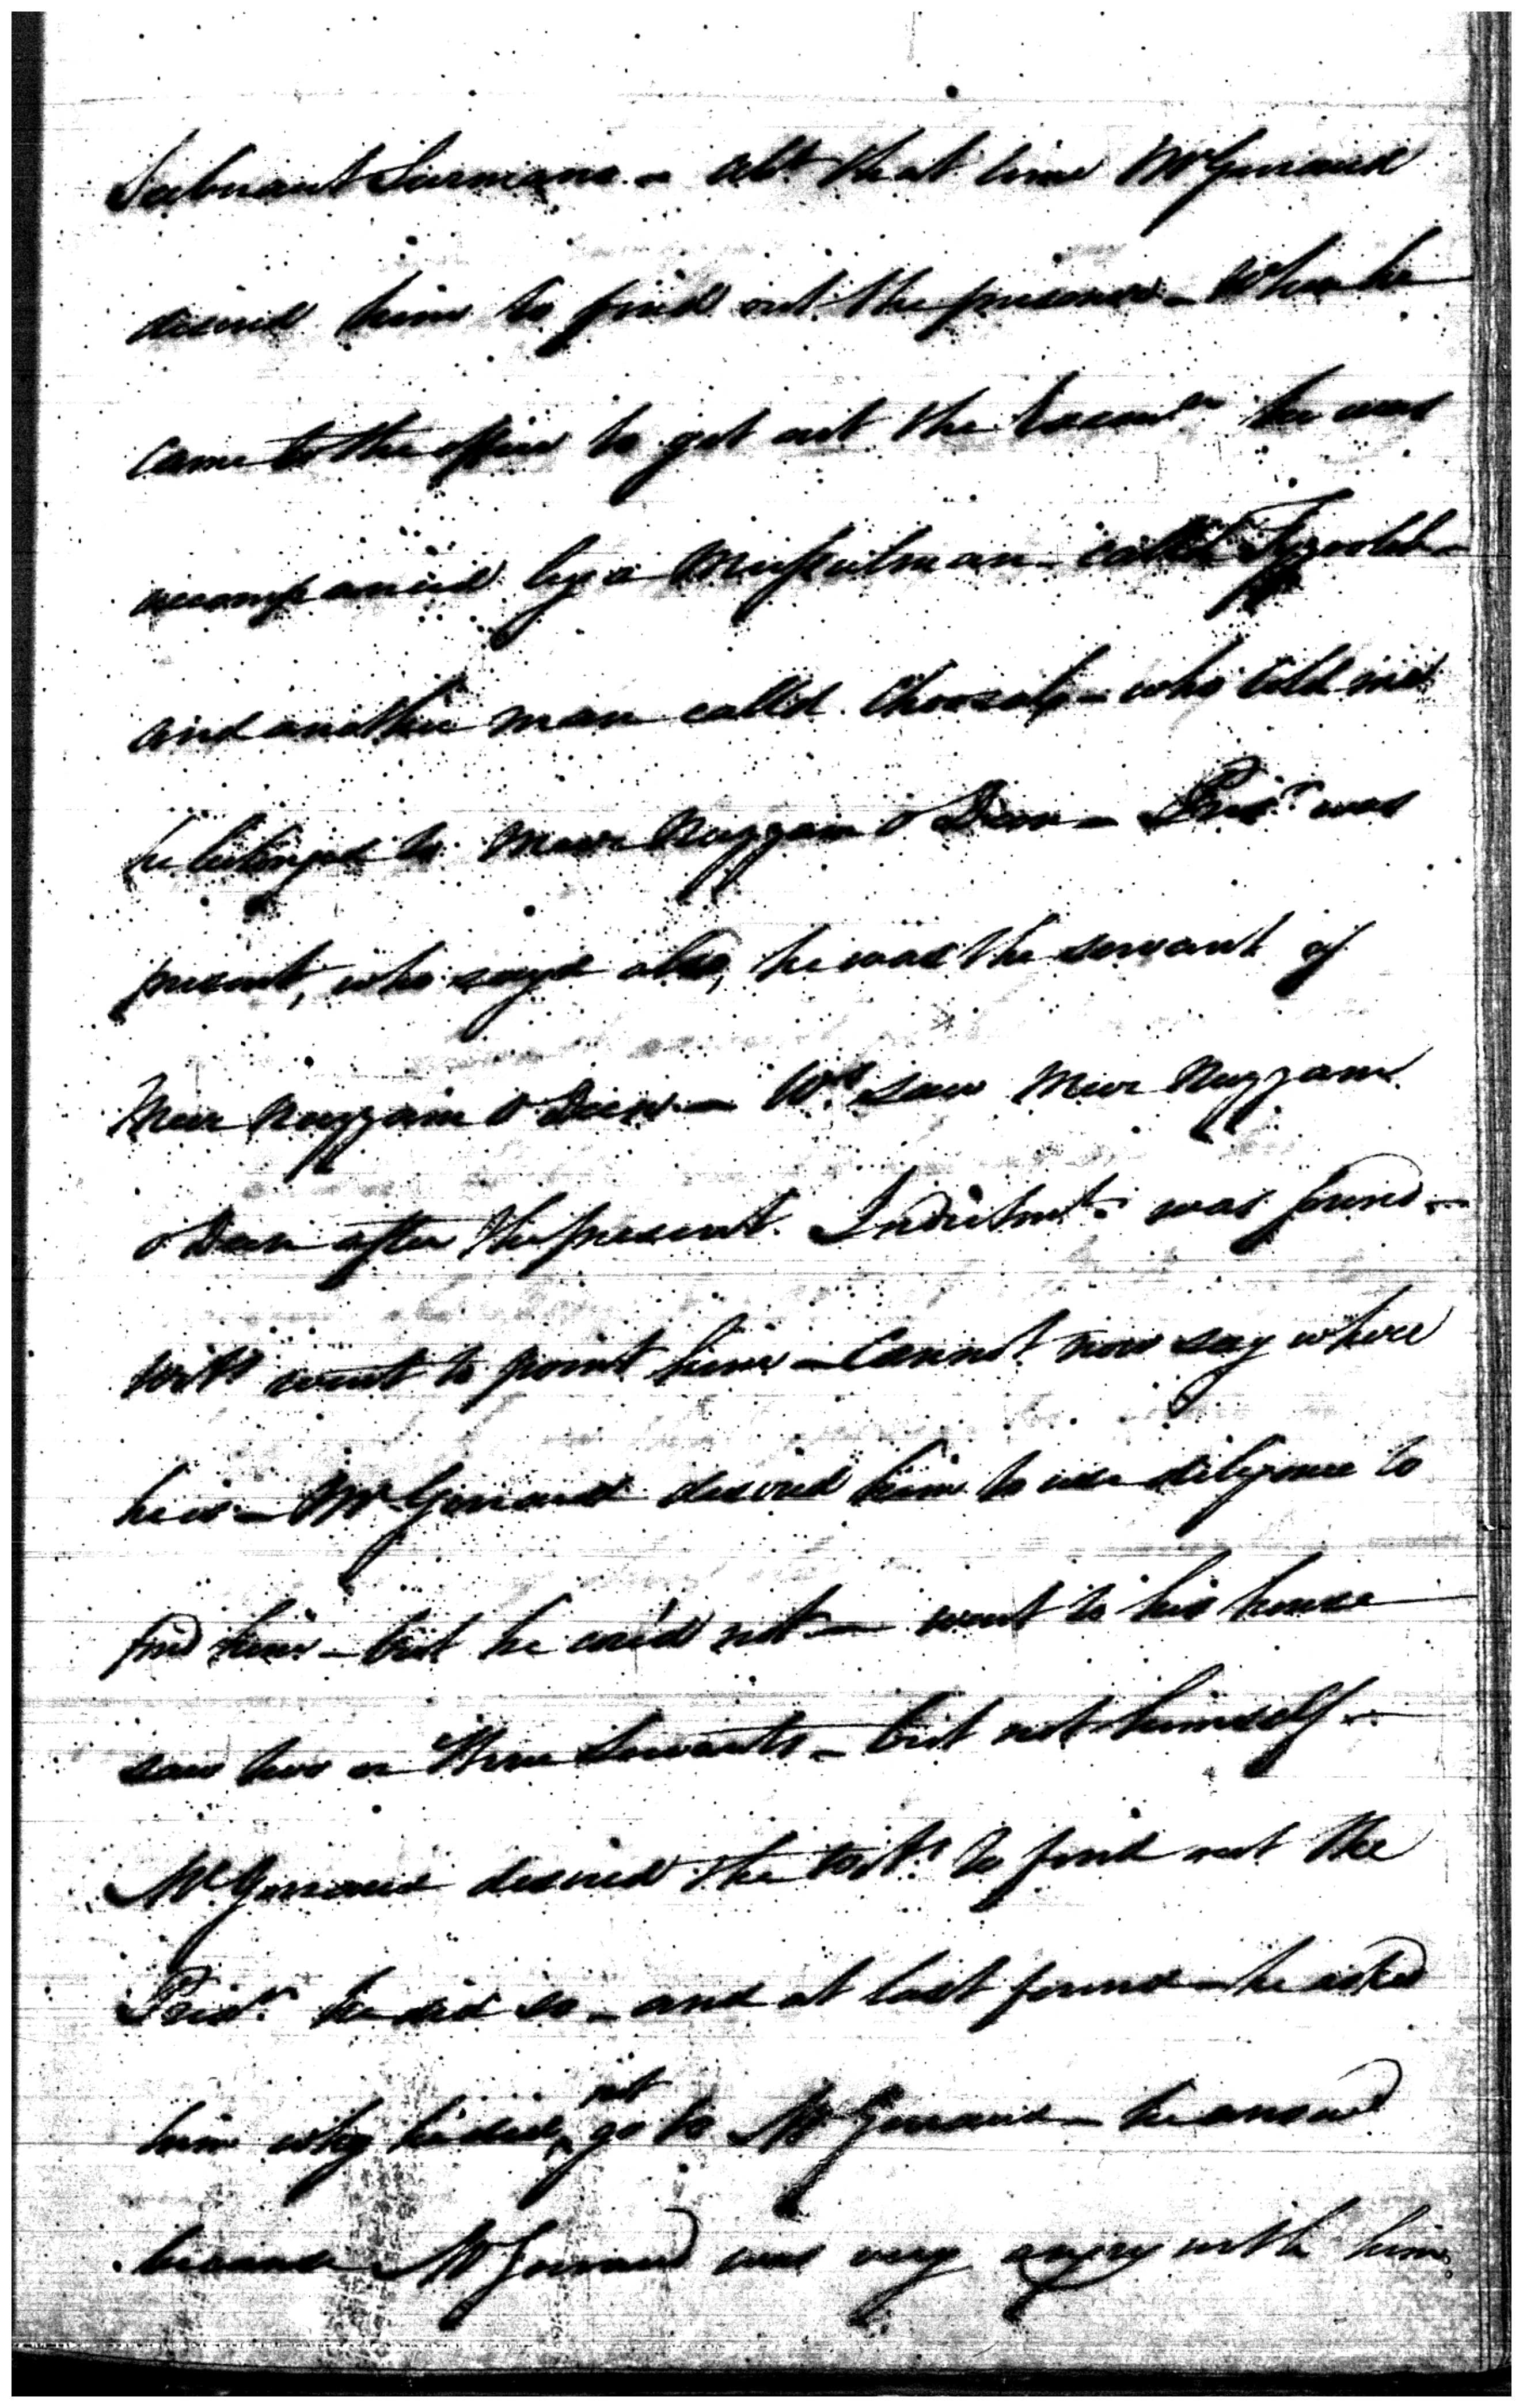 Sabuaut Surmono - abt that time Mr Gerrard
desired him to find out the prisoner - When he
came to the office to get out the Execut.n he was
accompanied by a Mussulman - called
and another man called Choosal - who told me
he belonged to Meer Nuzzam O Deen - Pris.r was
present, who says also, he was the servant of
Meer Nuzzam O Deen - W.s saw Meer Nuzzam
O Deen after the present Indictm.t was found -
Wit.s went to point him - Cannot now say where
he is - Mr Gerrard desired him to use diligence to
find him - but he co'd not - went to his house
saw two or three Servants - but not himself -
Mr Gerrard desired the Wit.s to find out the
Pris.r he did so - and at last found - he asked
him why he did not go to Mr Gerrard - he answd
because Mr Gerrard was very angry with him.